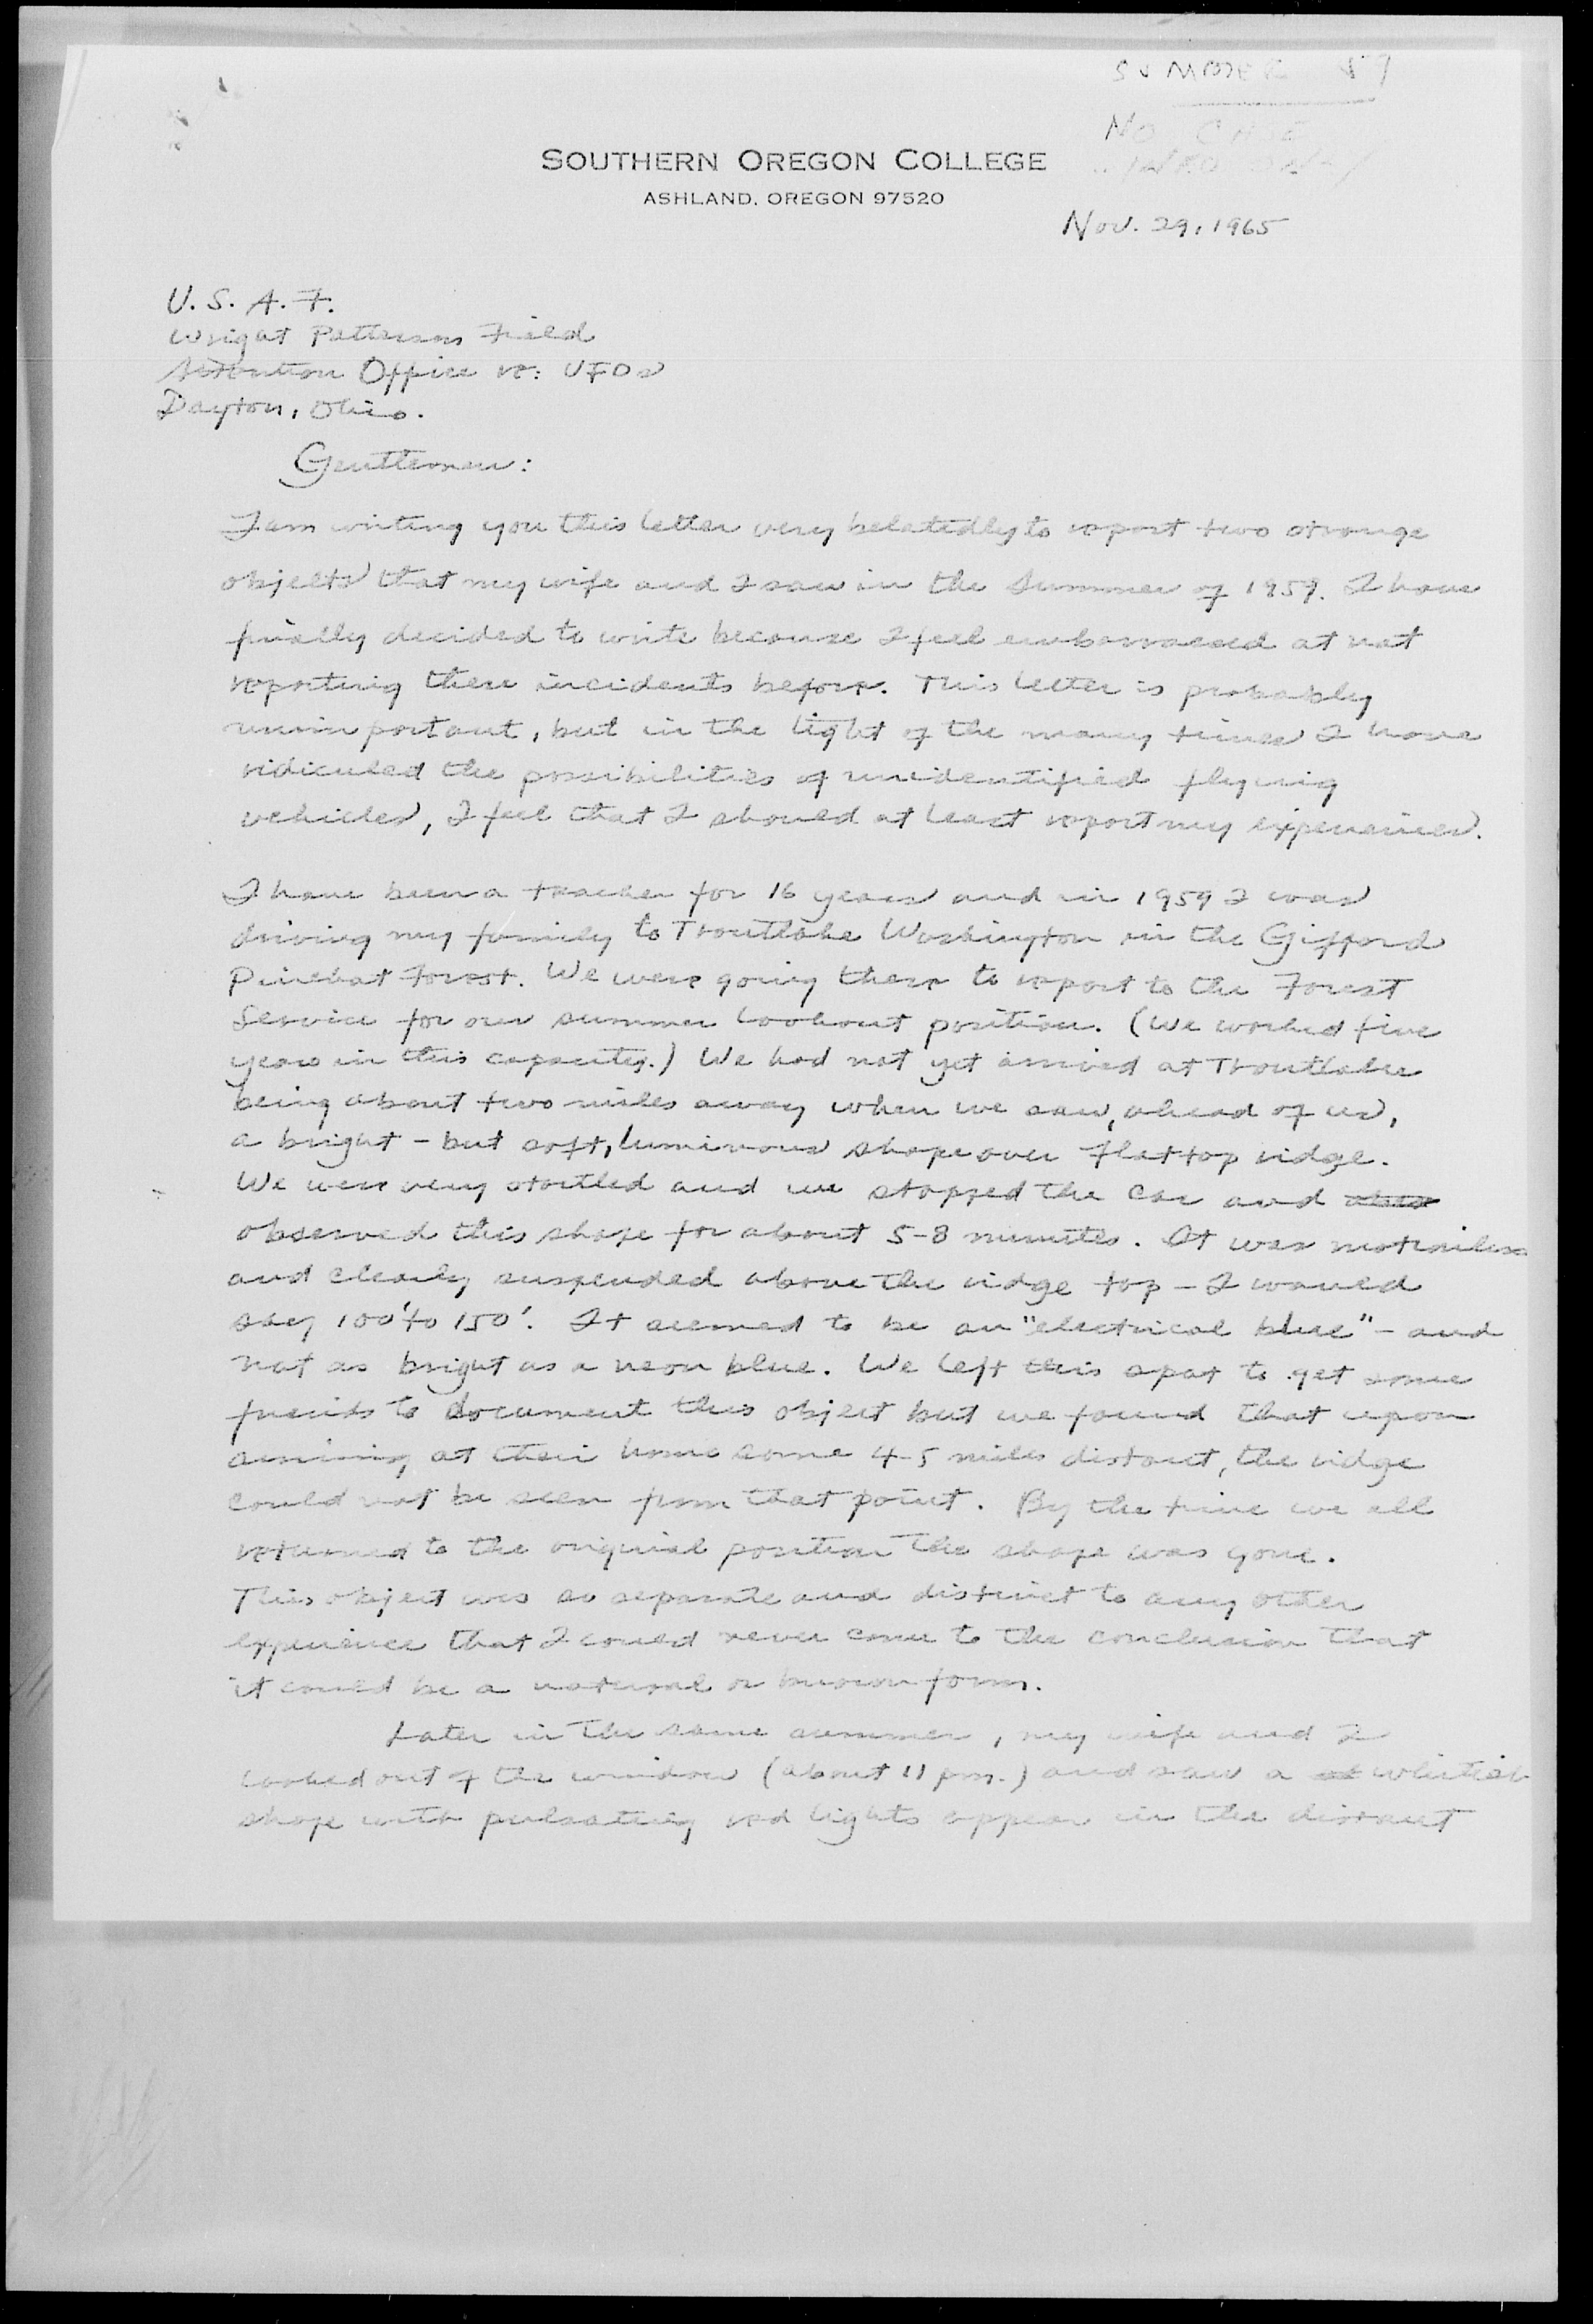 SUMMER 59
NO CASE
INFO ONLY
SOUTHERN OREGON COLLEGE
ASHLAND, OREGON 97520
Nov. 29, 1965
U. S. A. F.
Wright Patterson Field
Attention Office re: UFOs
Dayton, Ohio.
Gentlemen:
I am writing you this letter very belatedly to report two strange
objects that my wife and I saw in the Summer of 1959. I have
finally decided to write because I feel embarrassed at not
reporting these incidents before. This letter is probably
unimportant, but in the light of the many times I have
ridiculed the possibilities of unidentified flying
vehicles, I feel that I should at least report my experiences.
I have been a teacher for 16 years and in 1959 I was
driving my family to Troutlake Washington in the Gifford
Pinchot Forest. We were going there to report to the Forest
Service for our summer lookout position. (We worked five
years in this capacity.) We had not yet arrived at Troutlake
being about two miles away when we saw, ahead of us,
a bright - but soft, luminous shape over Flattop ridge.
We were very startled and we stopped the car and
observed this shape for about 5-8 minutes. It was motionless
and clearly suspended above the ridge top - I would
say 100' to 150'. It seemed to be an "electrical blue" - and
not as bright as a neon blue. We left this spot to get some
friends to document this object but we found that upon
arriving at their home some 4-5 miles distant, the ridge
could not be seen from that point. By the time we all
returned to the original position the shape was gone.
This object was so separate and distinct to any other
experience that I could never come to the conclusion that
it could be a natural or known form.
Later in the same summer, my wife and I
looked out of the window (about 11 pm.) and saw a whitish
shape with pulsating red lights appear in the distant